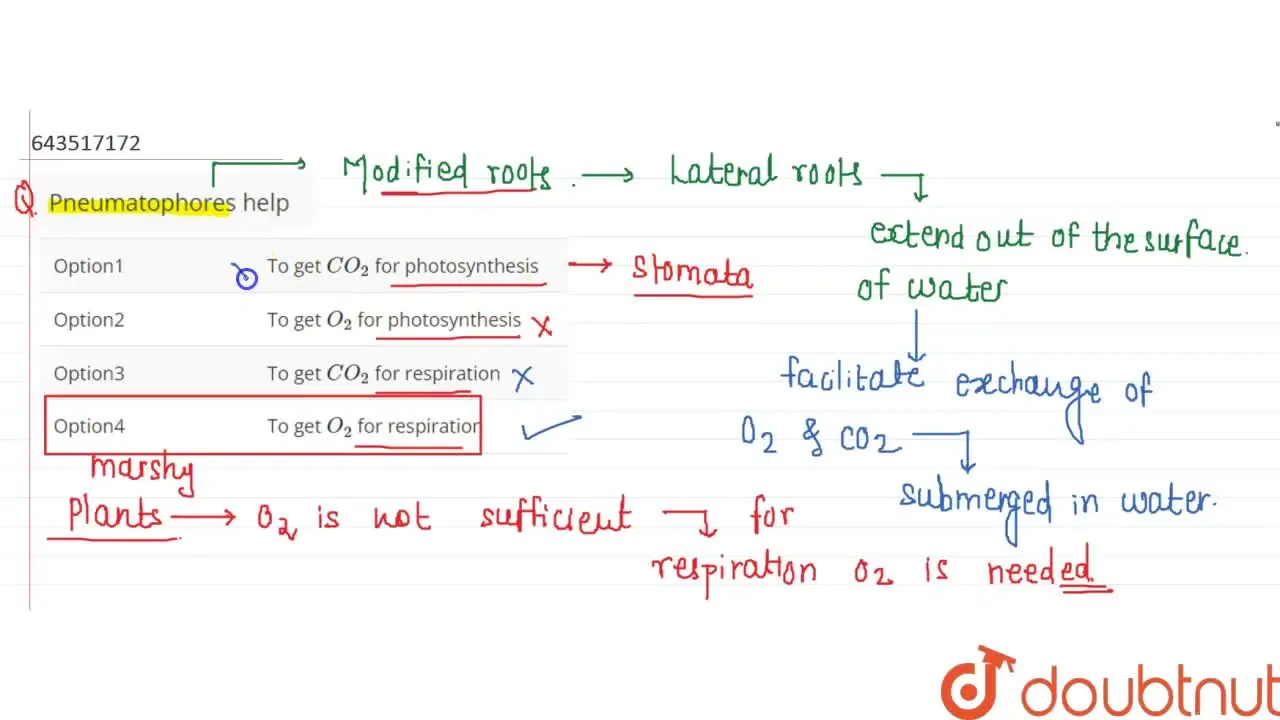 643517172
Modified roots. → Lateral roots
Q. Pneumatophores help
extend out of the surface.
of water
Option1 To get CO₂ for photosynthesis → Stomata
Option2 To get O₂ for photosynthesis X
facilitate exchange of
Option3 To get CO₂ for respiration X
Option4 To get O₂ for respiration ✓
O₂ & CO₂
submerged in water.
marshy
Plants → O₂ is not sufficient → for
respiration O₂ is needed.
doubtnut